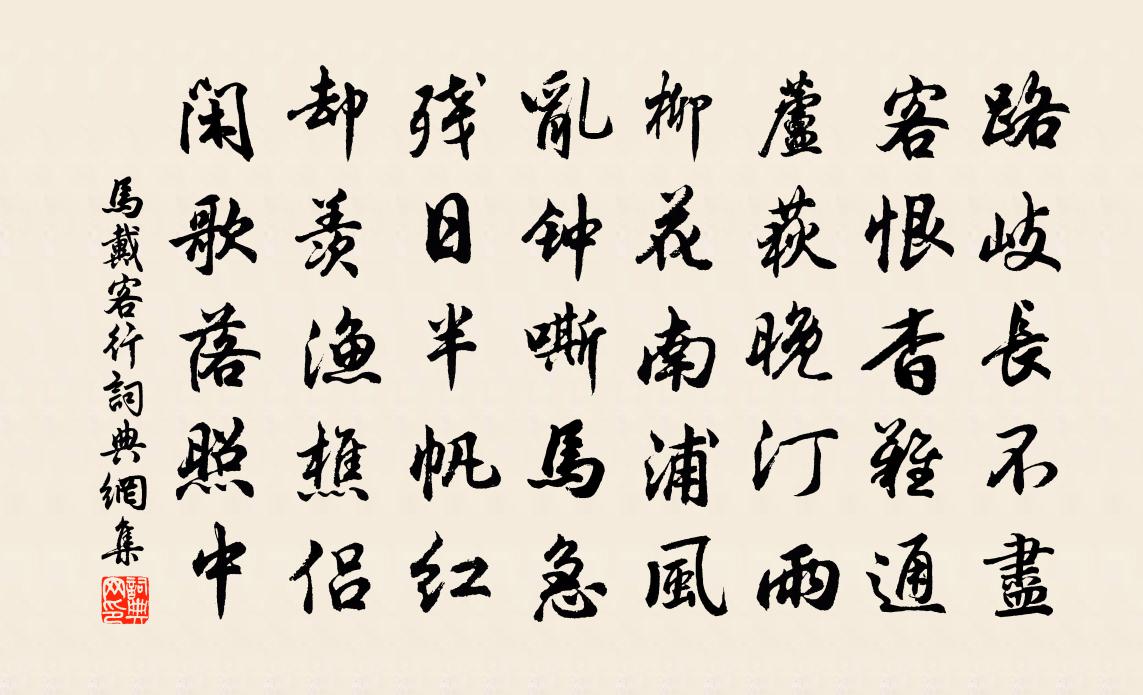 路岐長不盡
客恨杳難通
蘆荻晚汀雨
柳花南浦風
亂钟嘶馬急
残日半帆红
却羨漁樵侶
閑歌落照中
馬戴客行詞典網集
詞典网印